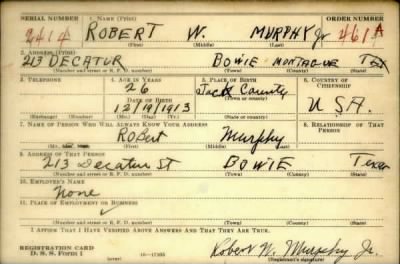 SERIAL NUMBER 1. NAME (Print) ORDER NUMBER
2414 ROBERT W. MURPHY Jr 461A
(First) (Middle) (Last)
2. ADDRESS (Print)
213 DECATUR BOWIE MONTAGUE Tex
(Number and street or R. F. D. number) (Town) (County) (State)
3. TELEPHONE 4. AGE IN YEARS 5. PLACE OF BIRTH 6. COUNTRY OF CITIZENSHIP
26 Jack County
DATE OF BIRTH (Town or county)
12/19/1913 U.S.A.
(Exchange) (Number) (Mo.) (Day) (Yr.) (State or country)
7. NAME OF PERSON WHO WILL ALWAYS KNOW YOUR ADDRESS 8. RELATIONSHIP OF THAT PERSON
RoBert Murphy
(First) (Middle) (Last)
9. ADDRESS OF THAT PERSON
213 Decatur St BOWIE Texas
(Number and street or R. F. D. number) (Town) (County) (State)
10. EMPLOYER'S NAME
None
11. PLACE OF EMPLOYMENT OR BUSINESS
(Number and street or R. F. D. number) (Town) (County) (State)
I AFFIRM THAT I HAVE VERIFIED ABOVE ANSWERS AND THAT THEY ARE TRUE.
REGISTRATION CARD
D. S. S. Form 1 (over) 16—17105 Robert W. Murphy Jr.
(Registrant's signature)